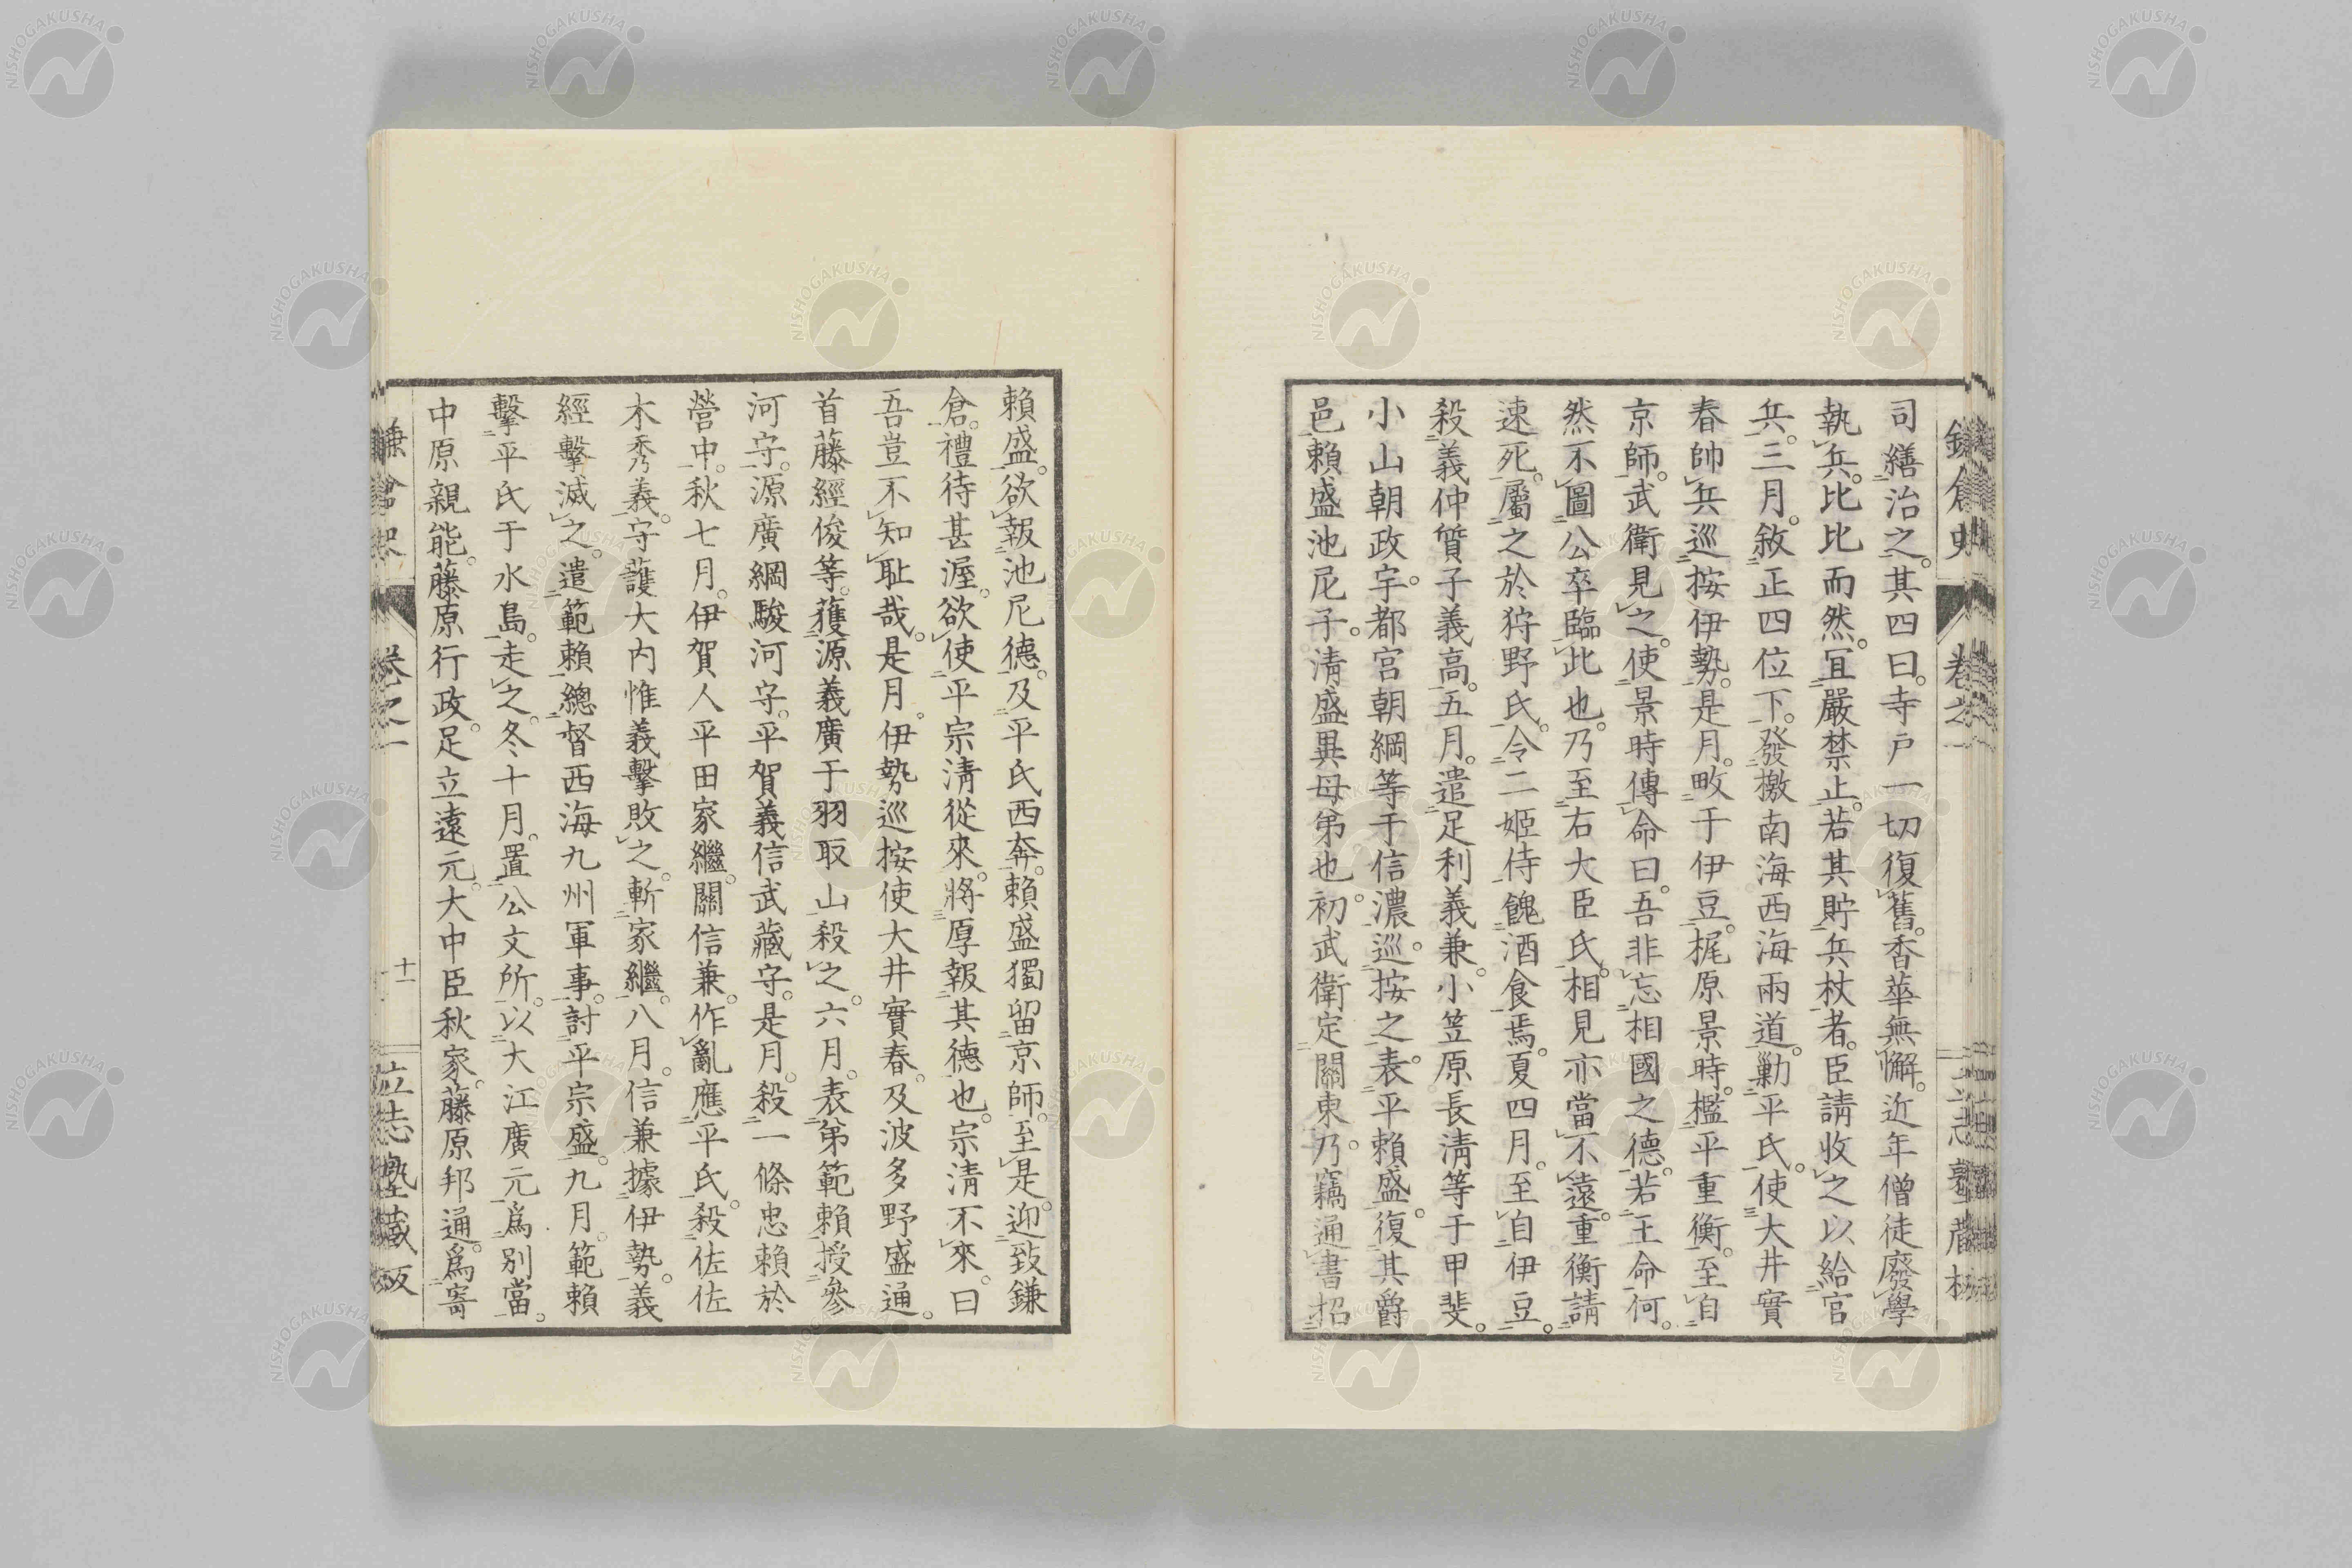 司繕治之。其四曰。寺戶一切復舊。香華無懈。近年僧徒廢學
執兵。比比而然。宜嚴禁止。若其貯兵杖者。臣請收之以給官
兵。三月。敘正四位下。發檄南海西海兩道。勦平氏。使大井實
春帥兵巡按伊勢。是月。畋于伊豆。梶原景時。檻平重衡。至自
京師。武衛見之。使景時傳命曰。吾非忘相國之德。若王命何。
然不圖公卒臨此也。乃至右大臣氏。相見亦當不遠。重衡請
速死。屬之於狩野氏。令二姬侍餽酒食焉。夏四月。至自伊豆。
殺義仲質子義高。五月。遣足利義兼。小笠原長淸等于甲斐。
小山朝政。宇都宮朝綱等于信濃。巡按之。表平賴盛。復其爵
邑。賴盛池尼子。淸盛異母弟也。初武衛定關東。乃竊通書招
賴盛。欲報池尼德。及平氏西奔。賴盛獨留京師。至是。迎致鎌
倉。禮待甚渥。欲使平宗淸從來。將厚報其德也。宗淸不來。曰
吾豈不知恥哉。是月。伊勢巡按使大井實春。及波多野盛通。
首藤經俊等。獲源義廣于羽取山殺之。六月。表弟範賴授參
河守。源廣綱駿河守。平賀義信武藏守。是月。殺一條忠賴於
營中。秋七月。伊賀人平田家繼。關信兼。作亂應平氏。殺佐佐
木秀義。守護大內惟義擊敗之。斬家繼。八月。信兼據伊勢。義
經擊滅之。遣範賴總督西海九州軍事。討平宗盛。九月。範賴
擊平氏于水島。走之。冬十月。置公文所。以大江廣元爲別當。
中原親能。藤原行政。足立遠元。大中臣秋家。藤原邦通。爲寄
鎌倉史
卷之一
十一
立志塾藏版
NISHOGAKUSHA